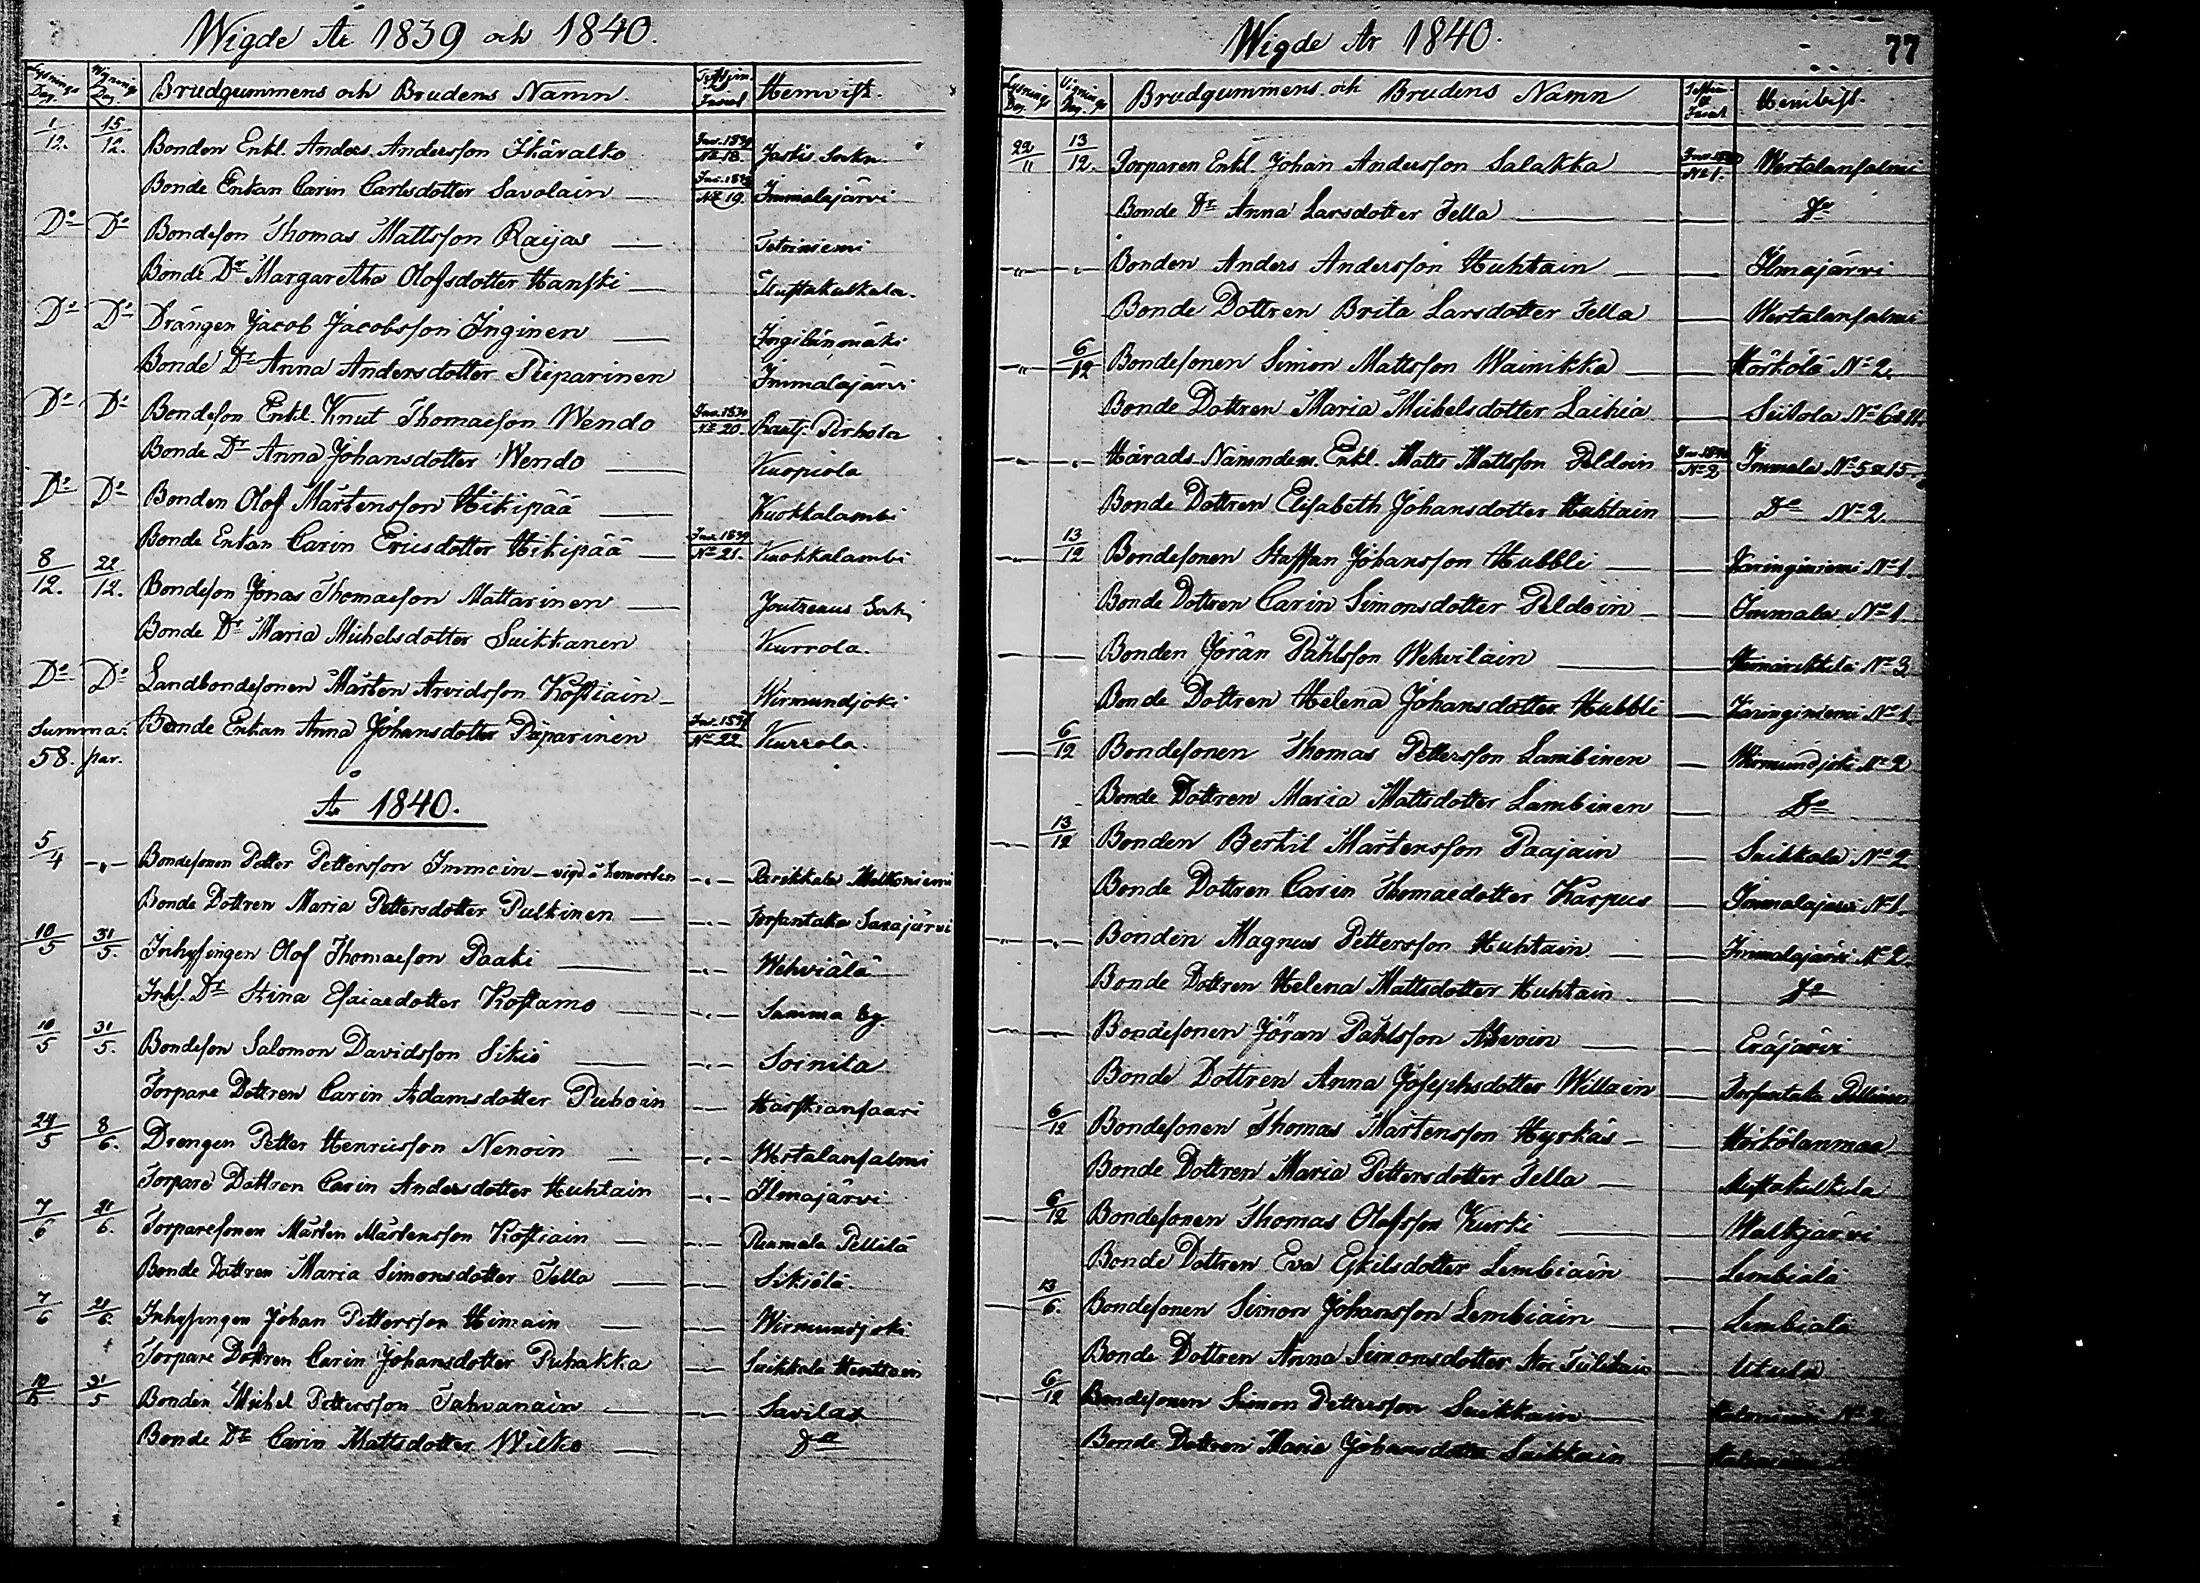 Wigde År 1839 och 1840.
Lysnings Dag. Wignings Dag. Brudgummens och Brudens Namn. Hemvist.
1/12. 15/12. Bonden Enkl. Anders Andersson Ikävalko Inv. 1839 No 18. Jäskis Sockn
Bonde Enkan Carin Carlsdotter Savolain Inv. 1839 No 19. Immalajärvi
Do Do Bondeson Thomas Mattsson Raijas Tetriniemi
Bonde Dr Margaretha Olofsdotter Hanski
Do Do Drängen Jacob Jacobsson Inginen
Bonde Dr Anna Andersdotter Piiparinen Immalajärvi
Do Do Bondeson Enkl. Knut Thomaeson Wendo Inv. 1839 No 20. Rautj. Pirhola
Bonde Dr Anna Johansdotter Wendo Kuopiola
Do Do Bonden Olof Mårtensson Hikipää Kuokkalambi
Bonde Enkan Carin Ericsdotter Hikipää Inv. 1839 No 21. Kuokkalambi
8/12. 22/12. Bondeson Jonas Thomaeson Mattarinen Joutzenus Sock.
Bonde Dr Maria Michelsdotter Suikkanen Kurrola.
Do Do Landbondesonen Mårten Arvidsson Kostiain Wirmundjoki
Summa: 58. par. Bonde Enkan Anna Johansdotter Piiparinen Inv. 1839 No 22. Kurrola.
År 1840.
5/4 -"- Bondesonen Petter Pettersson Immoin - vigd å hemorten -"- Parikkala Melkoniemi
Bonde Dottren Maria Pettersdotter Pulkinen -"- Torsantaka Sarajärvi
10/5 31/5. Inhysingen Olof Thomaeson Paaki -"- Wehviälä
Inhs. Dr Stina Esaiaedotter Kostamo -"- Samma by.
10/5 31/5. Bondeson Salomon Davidsson Sikiö -"- Soinila
Torpare Dottren Carin Adamsdotter Puhoin Härskiansaari
24/5 8/6. Drengen Petter Henricsson Nenoin -"- Wertalansalmi
Torpare Dottren Carin Andersdotter Huhtain -"- Ilmajärvi
7/6 21/6. Torparesonen Mårten Mårtensson Kostiain -"- Puumala Pellilä
Bonde Dottren Maria Simonsdotter Tella Sikiölä
7/6 21/6. Inhysingen Johan Pettersson Himain Wirmundjoki
Torpare Dottren Carin Johansdotter Puhakka Suikkala
10/5 31/5 Bonden Michel Pettersson Tahvanain Savilax
Bonde Dr Carin Mattsdotter Wilko Do
Wigde År 1840. 77
Lysnings Dag. Wignings Dag. Brudgummens och Brudens Namn Hemvist.
22/11 13/12. Torparen Enkl. Johan Andersson Salakka Inv. 1840 No 1. Wertalansalmi
Bonde Dr Anna Larsdotter Tella Do
-"- -"- Bonden Anders Andersson Huhtain Ilmajärvi
Bonde Dottren Brita Larsdotter Tella Wertalansalmi
-"- 6/12 Bondesonen Simon Mattsson Wainikka Härkölä No 2.
Bonde Dottren Maria Michelsdotter Laihia
-"- -"- Härads Nämndem. Enkl. Matts Mattsson Peldoin Inv. 1840 No 2 Immala No 5 a 15
Bonde Dottren Elisabeth Johansdotter Huhtain Do No 2.
13/12 Bondesonen Staffan Johansson Hubbli Käringiniemi No 1
Bonde Dottren Carin Simonsdotter Peldoin Immala No 1
Bonden Jöran Påhlsson Wehvilain No 3
Bonde Dottren Helena Johansdotter Hubbli Käringiniemi No 1
6/12 Bondesonen Thomas Pettersson Lambinen Wirmundjoki No 2
Bonde Dottren Maria Mattsdotter Lambinen Do
13/12 Bonden Bertil Mårtensson Paajain Suikkala No 2
Bonde Dottren Carin Thomaedotter Karpus Immalajärvi No 1.
-"- -"- Bonden Magnus Pettersson Huhtain Immalajärvi No 2
Bonde Dottren Helena Mattsdotter Huhtain Do
Bondesonen Jöran Påhlsson Ahvoin Eräjärvi
Bonde Dottren Anna Josephsdotter Willain Torsantaka Pellinen
6/12 Bondesonen Thomas Mårtensson Hyrkäs Härkölänmaa
Bonde Dottren Maria Pettersdotter Tella
6/12 Bondesonen Thomas Olofsson Kurki Walkjärvi
Bonde Dottren Eva Eskilsdotter Lembiäin Lembiälä
13/6. Bondesonen Simon Johansson Lembiäin Lembiälä
Bonde Dottren Anna Simonsdotter Utula
6/12 Bondesonen Simon Pettersson Suikkain
Bonde Dottren Maria Johansdotter Suikkain